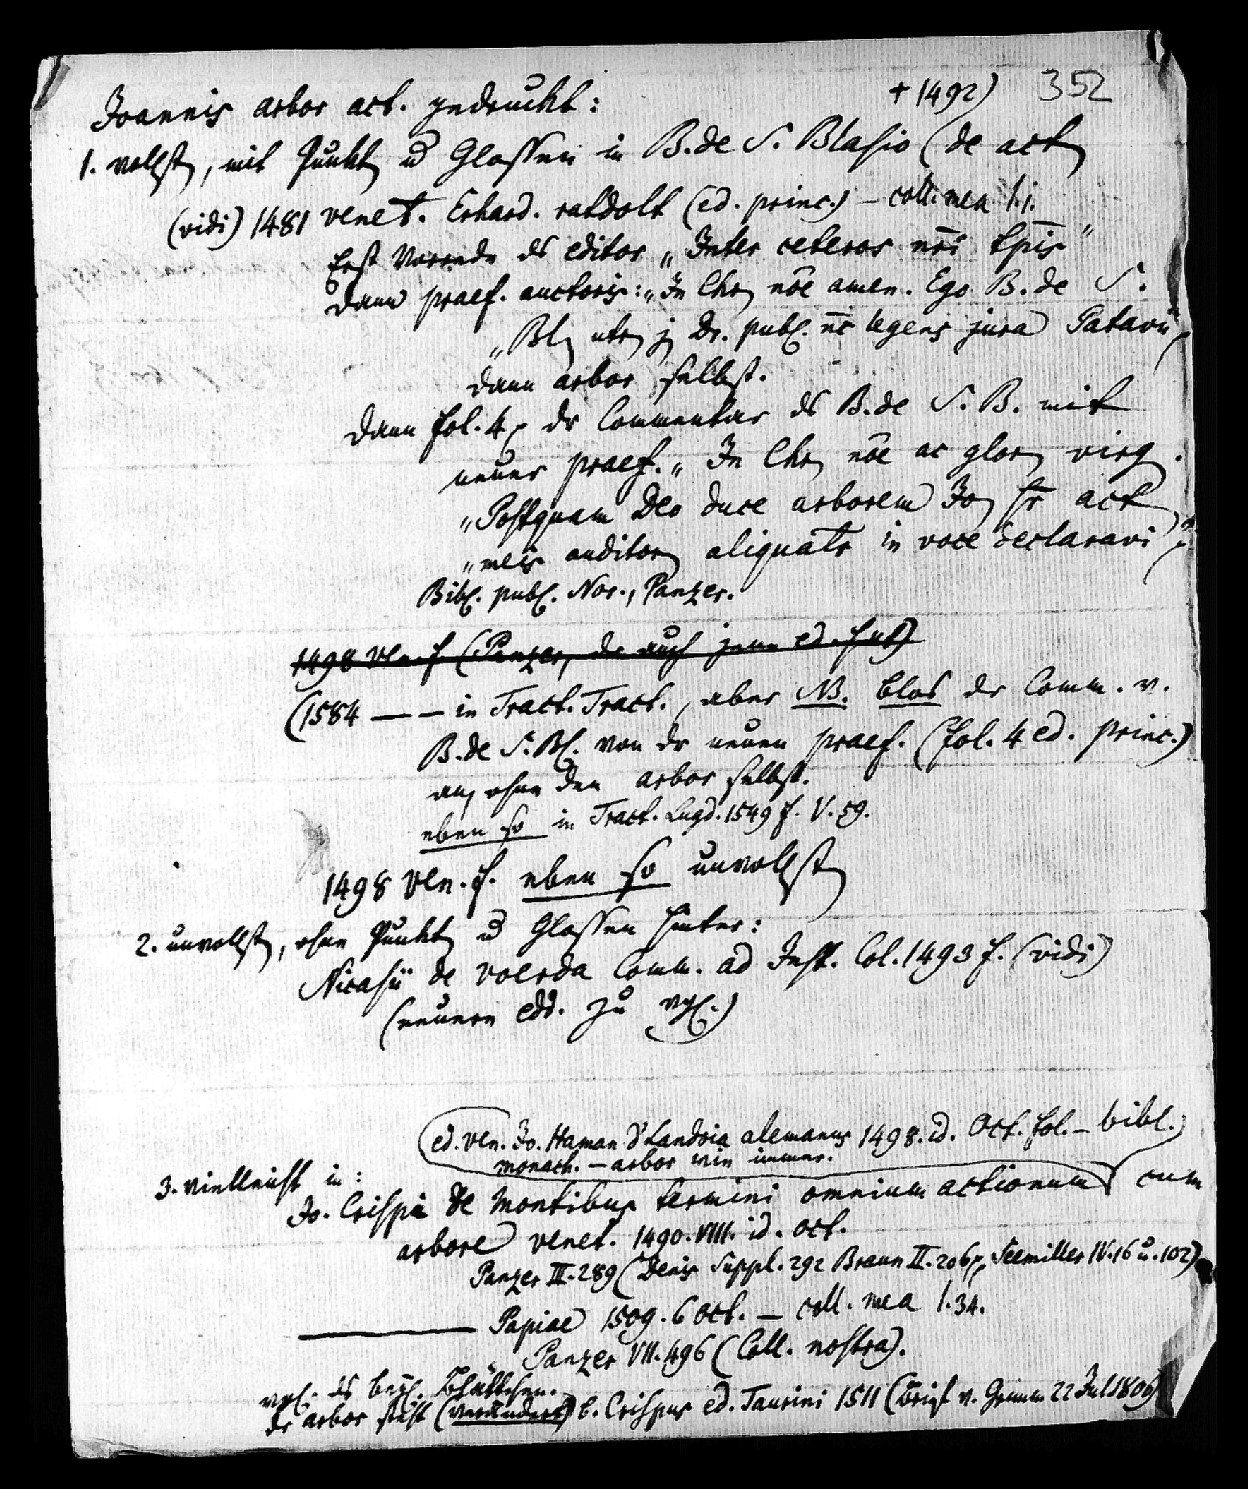 352
Joannis arbor act. gedruckt:
+ 1492)
1. vollst, mit Punkt u Glossen in B. de S. Blasio (de act
(vidi) 1481 venet. Erhard. ratdolt (ed. princ.) – coll. mea I.i.
Erst Vorrede ds editor „Inter ceteros nr̄i tp̄is"
dann praef. auctoris: „In Chr nōe amen. Ego B. de S.
„Bl utr j Dr. publ. n̄c legens jura Patavii
dann arbor selbst.
dann fol. 4 dr Commentar ds B. de S. B. mit
neuer praef. „In Chr nōe ac glor virg.
„Postquam Deo duce arborem Jo fr act
„meis auditor aliquatr in voce declaravi
Bibl. publ. Nor., Panzer.
1498 Ven. f (Panzer, der auch jene ed. hat)
(1584 — — in Tract. Tract., aber NB. blos dr Comm. v.
B. de S. Bl. von dr neuen praef. (fol. 4 ed. princ.)
an, ohne den arbor selbst.
eben so in Tract. Lugd. 1549 f. V. 59.
1498 Ven. f. eben so unvollst
2. unvollst, ohne Punkt u Glossen hinter:
Nicasii de voerda Comm. ad Inst. Col. 1493 f. (vidi)
(neuere edd. zu vgl.)
ed. ven. Jo. Haman d' Landoia alemanus 1498. id. Oct. fol. – bibl.
monach. – arbor wie immer.
3. vielleicht in:
Jo. Crispi de Montibus termini omnium actionum cum
arbore venet. 1490. VIII. id. oct.
Panzer III. 289 (Denis Suppl. 292 Braun II. 206, Seemiller IV. 16 u. 102)
——— Papiae 1509. 6 Oct. – coll. mea I. 34.
Panzer VII. 496 (Coll. nostra).
vgl. ds beil. Blättchen.
dr arbor steht (verändert) b. Crispus ed. Taurini 1511 (Brief v. Grimm 22 Jul 1809)